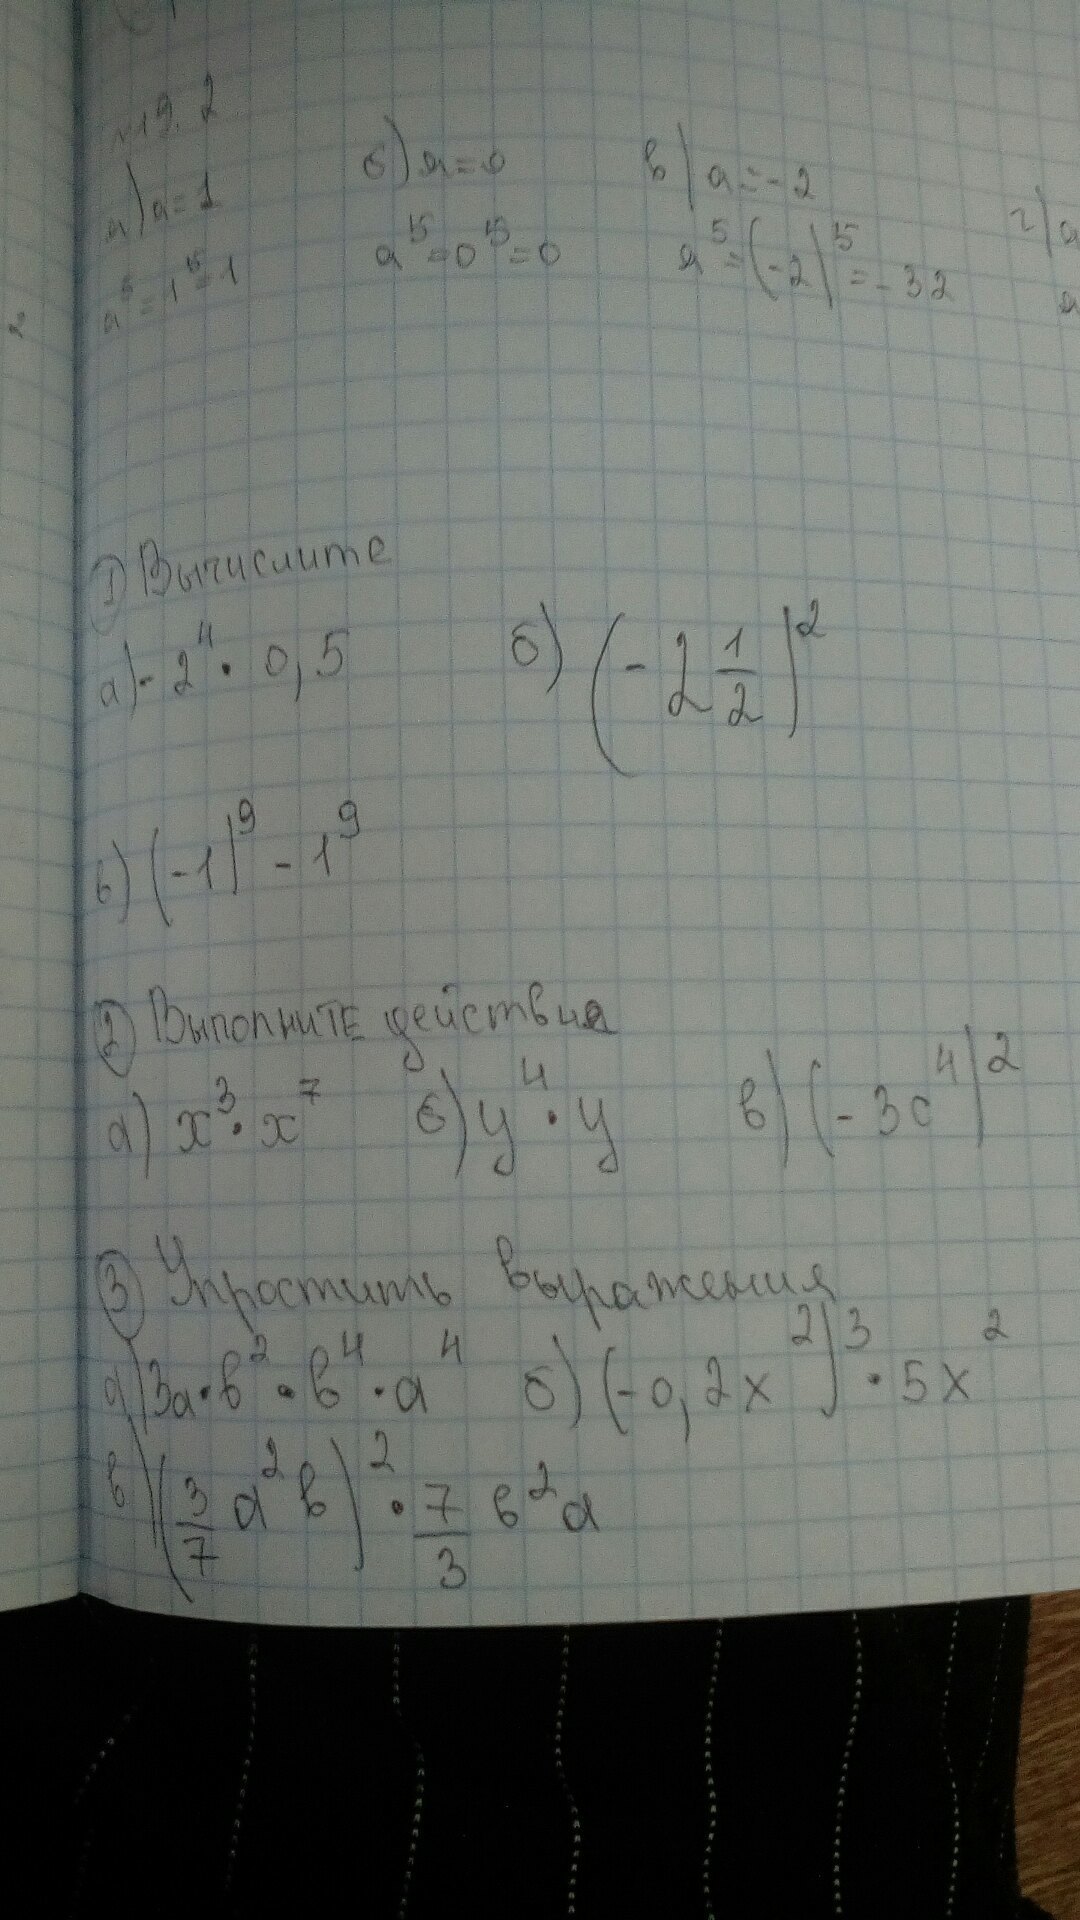 №19.2
а) a=1 б) a=0 в) a=-2 г) a
a⁵=1⁵=1 a⁵=0⁵=0 a⁵=(-2)⁵=-32 a
① Вычислите
а) -2⁴ · 0,5 б) (-2 1/2)²
в) (-1)⁹ - 1⁹
② Выполните действия
а) x³ · x⁷ б) y⁴ · y в) (-3c⁴)²
③ Упростить выражения
а) 3a · b² · b⁴ · a⁴ б) (-0,2x²)³ · 5x²
в) (3/7 a²b)² · 7/3 b²a